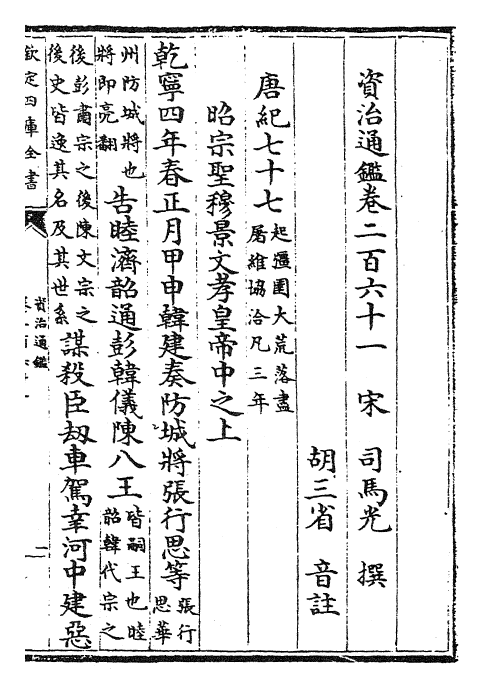 資治通鑑卷二百六十一 宋 司馬光 撰
胡三省 音註
唐紀七十七 起彊圉大荒落盡屠維協洽凡三年
昭宗聖穆景文孝皇帝中之上
乾寧四年春正月甲申韓建奏防城將張行思等 張行思華
州防城將也將即亮翻 告睦濟韶通彭韓儀陳八王 皆嗣王也睦韶韓代宗之
後彭肅宗之後陳文宗之後史皆逸其名及其世系 謀殺臣刼車駕幸河中建惡
欽定四庫全書
資治通鑑
二